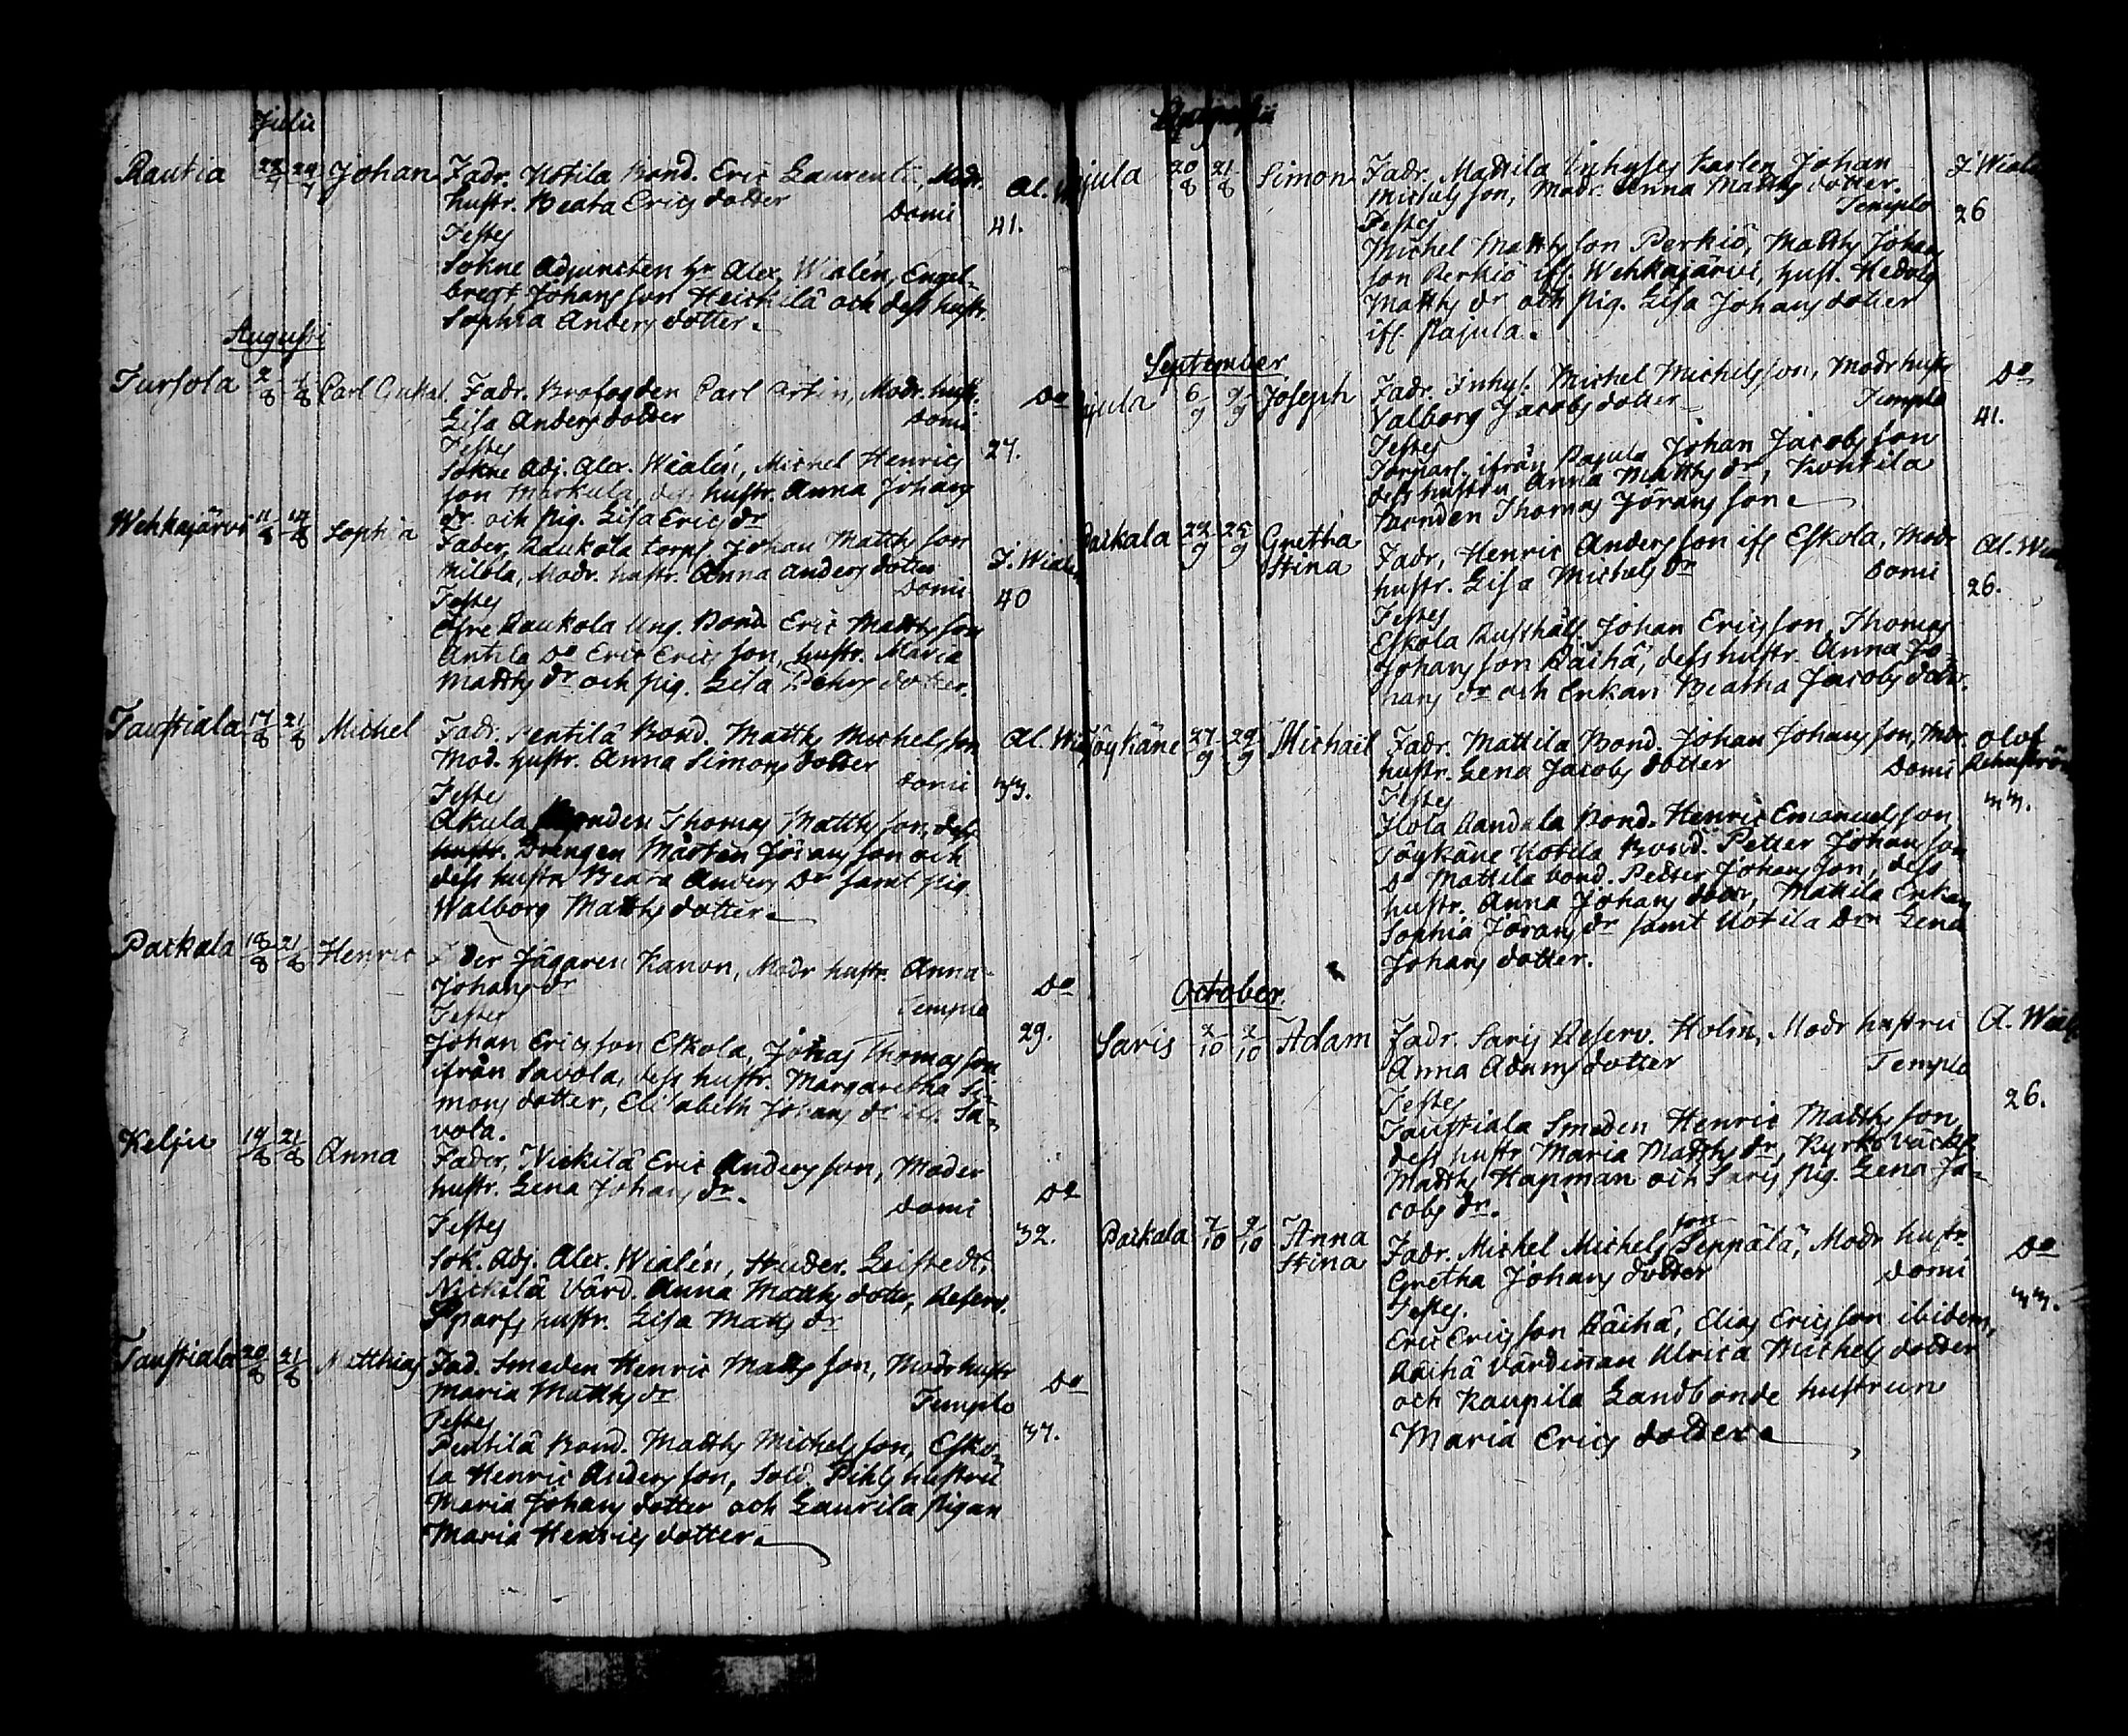 Julii
Rautia 22/7 24/7 Johan Fadr. Uotila Bond. Eric Laurenti, Modr. Al.
hustr. Beata Erics dotter Domi
Testes 41.
Sokne Adjuncten Hr Alex. Wialén, Engel-
bregt Johans son Heickilä och dess hustr.
Sophia Anders dotter.
Augusti
Tursola 2/8 /8 Carl Fadr. Brofogden Carl Modr. hustr. Do
Lisa Anders dotter Domi
Testes 27.
Sokne Adj. Alex. Wialén, Michel Henrics
son Markula, dess hustr. Anna Johans
dr. och pig. Lisa Erics dr
Wehkajärvi 11/8 14/8 Sophia Fader, Raukola torp. Johan Matths son
Milola, Modr. hustr. Anna Anders dotter J. Wialen
Domi
Testes 40
Öfre Raukola Ung. Bond. Eric Matths son
Antila Do Eric Erics son, hustr. Maria
Matths dr och pig. Lisa dotter.
Taustiala 17/8 21/8 Michel Fadr. Pentilä Bond. Matths Michels son Al. Wia
Mod. hustr. Anna Simons dotter Domi
Testes 33.
Akula Bonden Thomas Matths son, dess
hustr. Drengen Morten Jörans son och
dess hustru Beata Anders Dr samt pig.
Walborg Matths dotter.
Packala 18/8 21/8 Henric Fader Jägaren Kanon, Modr hustr. Anna
Johans dr Do
Testes Templo
Johan Erics son Eskola, Johan Thomas son 29.
ifrån Savola, dess hustr. Margaretha Si-
mons dotter, Elisabeth Johans dr ifr. Sa-
vola.
Kelju 19/8 21/8 Anna Fader, Nickilä Eric Anders son, Moder
hustr. Lena Johans dr. Domi Do
Testes 32.
Sok. Adj. Alex. Wialén, Studer. Leistedt,
Nickilä Värd. Anna Matths dotter, Reserv.
Sparfs hustr. Lisa Matts dr
Taustiala 20/8 21/8 Matthias Fad. Smeden Henric Matts son, Modr hustr
Maria Matths dr Templo Do
Testes 37.
Pentilä Bond. Matths Michels son, Esko-
la Henric Anders son, Sold. Pihls hustru
Maria Johans dotter och Laurila pigan
Maria Henrics dotter.
jula 20/8 21/8 Simon Fadr. Mattila Inhyses Karlen Johan J. Wiale
Michels son, Modr. Anna Matths dotter.
Templo 26
Testes
Michel Matths son Perkiö, Matths Johans
son Perkiö ifr. Wehkajärvi, hust. Hedvig
Matths dr och pig. Lisa Johans dotter
ifr. Pajula.
September
jula 6/9 9/9 Joseph Fadr. Inhys. Michel Michels son, Modr hustr Do
Valborg Jacobs dotter Templo
Testes 41.
Torpare ifrån Pajula Johan Jacobs son
dess hustru Anna Matths dr, Kouttila
Bonden Thomas Jörans son
Packala 22/9 25/9 Gretha Stina Fadr, Henric Anders son ifr Eskola, Modr Al. Wia
hustr. Lisa Michels dr Domi 26.
Testes
Eskola Rusthåll. Johan Erics son, Thomas
Johans son Räihä, dess hustr. Anna Jo-
hans dr och Enkan Beatha Jacobs dotr.
Jöykäne 27/9 29/9 Michael Fadr. Mattila Bond. Johan Johans son, Mdr. Olof
hustr. Lena Jacobs dotter Domi
Testes 33.
Flola Randala Bond. Henric Emanuels son
Jöykäne Uotila Bond. Petter Johan son
Do Mattila bond. Petter Johans son, dess
hustr. Anna Johans dotter, Mattila Enkan
Sophia Jörans dr samt Uotila Drn Lena
Johans dotter.
October
Saris 2/10 2/10 Adam Fadr. Saris Reserv. Holm, Modr hustru A. Wial
Anna Adams dotter Templo
Testes 26.
Taustiala Smeden Henric Matths son
dess hustr Maria Matths dr, Kyrko
Matths Hapman och Saris pig. Lena Ja-
cobs dr.
Packala 7/10 9/10 Anna Stina Fadr. Michel Michels son Seppälä, Modr hustr. Do
Gretha Johans dotter Domi
Testes. 33.
Eric Erics son Räihä, Elias Erics son ibidem,
Räihä Värdinnan Ulrica Michels dotter
och Kaupila Landbonde hustrun
Maria Erics dotter